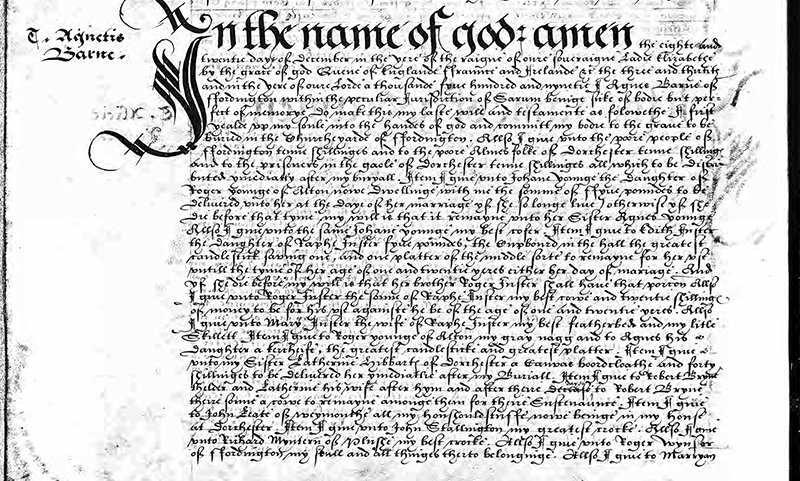 T. Agnetis
Barne.
In the name of god: amen the eighte and
twentie daye of December in the yere of the raigne of oure soveraigne Ladie Elizabethe
by the grace of god Quene of Englande ffraunce and Irelande &c the three and thirtie
and in the yere of oure Lorde a thousande fyve hundred and nynetie I Agnes Barne of
ffordington within the peculiar Jurisdiction of Sarum beinge sike of bodie but per-
fect of memorye Do make this my laste will and testamente as folowethe I first
yealde up my soule into the handes of god and committ my bodie to the grave to be
buried in the Churcheyarde of ffordington. Allso I give unto the poore people of
ffordington tenne shillinges and to the poore Almes folke of Dorchester tenne shillings
and to the prisoners in the gaole of Dorchester tenne shillinges all which to be distri
buted ymediatly after my buryall. Item I give unto Johane younge the Daughter of
Roger younge of Alton nowe dwellinge with me the somme of ffyve poundes to be
delivered unto her at the daye of her marriage yf she so longe live otherwise yf she
die before that tyme my will is that it remayne unto her Sister Agnes younge
Allso I give unto the same Johane younge my best cofer Item I give to Edith Juster
the daughter of Raphe Juster fyve poundes, the Cupbord in the hall the greatest
candlestick saving one, and one platter of the middle sorte to remayne for her use
untill the tyme of her age of one and twentie yeres either her day of mariage. And
yf she die before my will is that her brother Roger Juster shall have that porcon Allso
I give unto Roger Juster the sonne of Raphe Juster my best cowe and twentie shillings
of money to be for his use againste he be of the age of one and twentie yeres. Allso
I give unto Mary Juster the wife of Raphe Juster my best featherbed and my litle
Skillett. Item I give to Roger younge of Alton my gray nagg and to Agnes his
daughter a kerchife, the greatest candlesticke and greatest platter. Item I give
unto my Sister Catherine Hibbart of Dorchester a Canvas boordcloathe and forty
shillinges to be delivered her ymediatlie after my Buriall. Item I give to Robert Bryne
thelder and Catherine his wife after hym and after there decease to Robert Bryne
there sonne a cowe to remayne amonge them for there Sustenaunce. Item I give
to John Late of weymouthe all my houshould stuffe nowe beinge in my house
at Dorchester Item I give unto John Stallington my greatest crocke. Allso I give
unto Richard Myntern of my best crocke. Allso I give unto Roger
of ffordington my stall and all thinges therto belonginge. Allso I give to Marryan